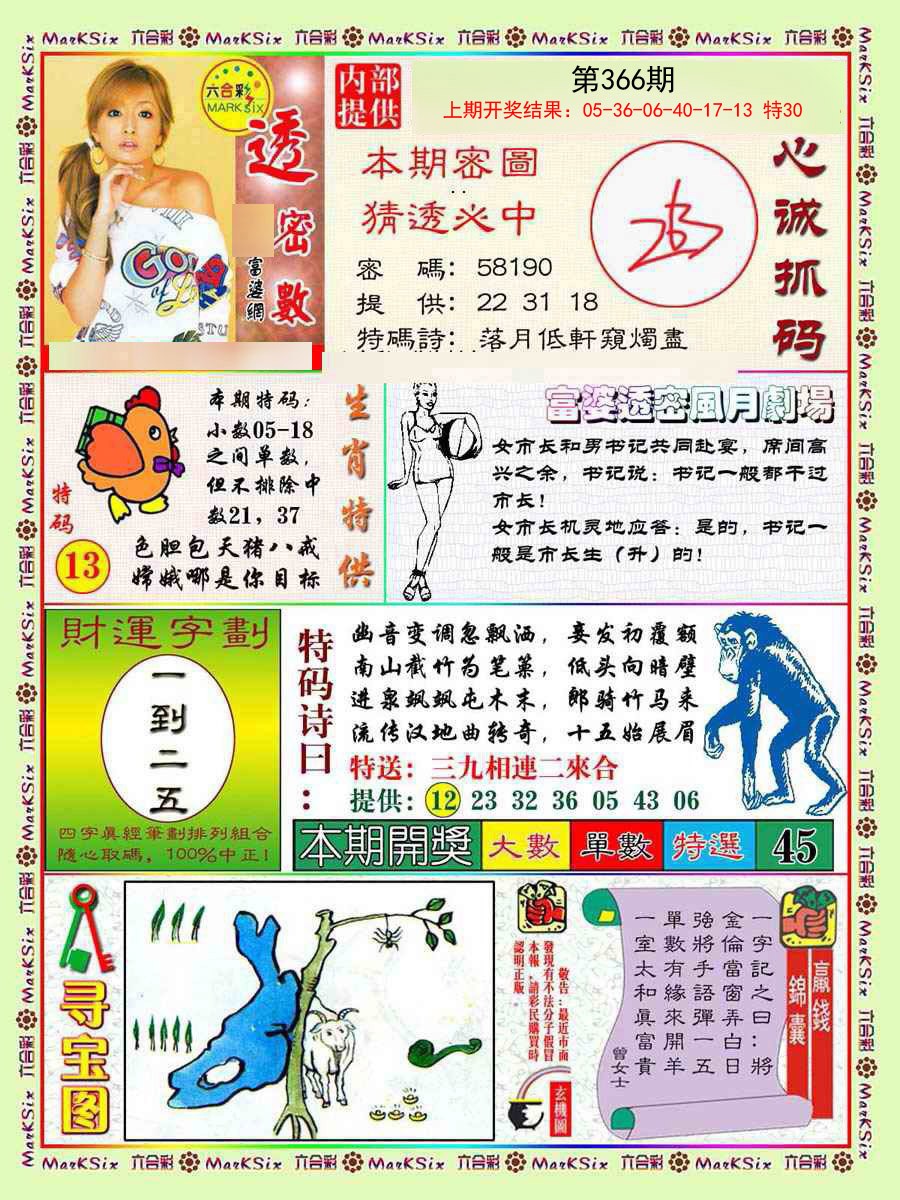 MarKSix 六合彩 MarKSix 六合彩 MarKSix 六合彩 MarKSix 六合彩 MarKSix 六合彩
六合彩
MARK six
透密數
富婆網
内部提供
第366期
上期开奖结果：05-36-06-40-17-13 特30
本期密圖
猜透必中
密 碼：58190
提 供：22 31 18
特碼詩：落月低軒窺燭盡
心诚抓码
特码
13
本期特码：
小数05-18
之间单数，
但不排除中
数21，37
色胆包天猪八戒
嫦娥哪是你目标
生肖特供
富婆透密風月劇場
女市长和男书记共同赴宴，席间高
兴之余，书记说：书记一般都干过
市长！
女市长机灵地应答：是的，书记一
般是市长生（升）的！
財運字劃
一到二五
四字真經筆劃排列組合
隨心取碼，100%中正！
特码诗曰：
幽音变调忽飘洒，妾发初覆额
南山截竹为笔篥，低头向暗壁
进泉飒飒屯木末，郎骑竹马来
流传汉地曲转奇，十五始展眉
特送：三九相連二來合
提供：12 23 32 36 05 43 06
本期開獎 大數 單數 特選 45
寻宝图
敬告：最近市面
發現有不法分子假冒
本報，請彩民購買時
認明正版。
玄機圖
贏錢
錦囊
一字記之曰：將
金倫當窗弄白日
強將手語彈一五
單數有緣來開羊
一室太和真富貴
曾女士
MarKSix 六合彩 MarKSix 六合彩 MarKSix 六合彩 MarKSix 六合彩 MarKSix 六合彩